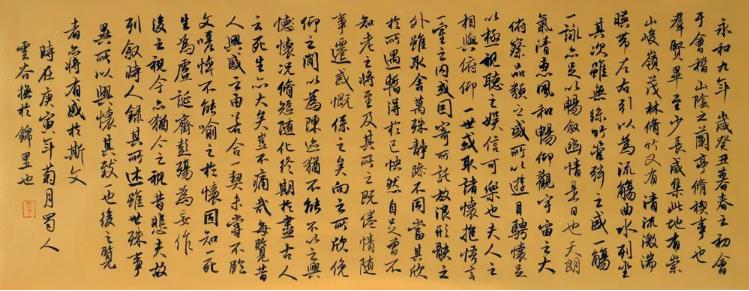 永和九年歲癸丑暮春之初會
于會稽山陰之蘭亭脩稧事也
群賢畢至少長咸集此地有崇
山峻嶺茂林脩竹又有清流激湍
暎帶左右引以為流觴曲水列坐
其次雖無絲竹管弦之盛一觴
一詠亦足以暢敘幽情是日也天朗
氣清惠風和暢仰觀宇宙之大
俯察品類之盛所以遊目騁懷足
以極視聽之娛信可樂也夫人之
相與俯仰一世或取諸懷抱悟言
一室之內或因寄所託放浪形骸之
外雖取舍萬殊靜躁不同當其欣
於所遇暫得於己快然自足曾不
知老之將至及其所之既倦情隨
事遷感慨係之矣向之所欣俛
仰之間以為陳迹猶不能不以之興
懷況脩短隨化終期於盡古人
云死生亦大矣豈不痛哉每覽昔
人興感之由若合契未嘗不臨
文嗟悼不能喻之於懷固知一死
生為虛誕齊彭殤為妄作
後之視今亦猶今之視昔悲夫故
列敘時人錄其所述雖世殊事
異所以興懷其致一也後之覽
者亦將有感於斯文
時在庚寅年菊月蜀人
雲谷撫於錦里也